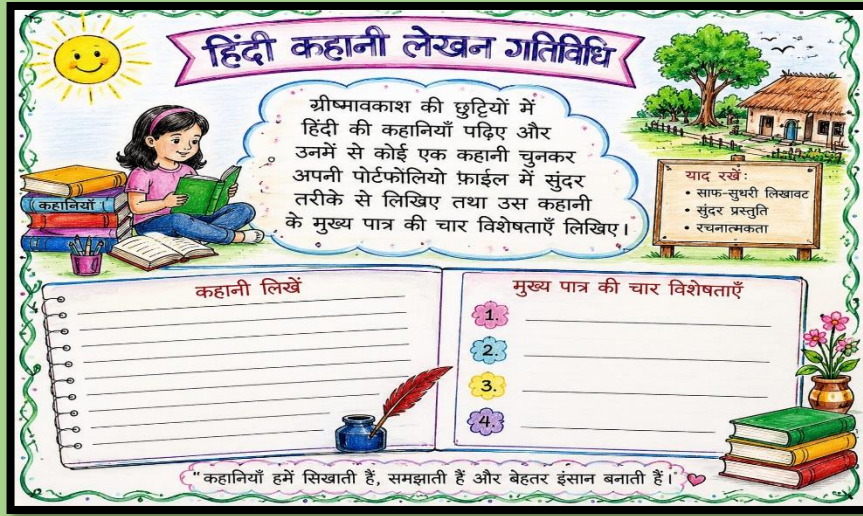 हिंदी कहानी लेखन गतिविधि
ग्रीष्मावकाश की छुट्टियों में
हिंदी की कहानियाँ पढ़िए और
उनमें से कोई एक कहानी चुनकर
अपनी पोर्टफोलियो फ़ाईल में सुंदर
तरीके से लिखिए तथा उस कहानी
के मुख्य पात्र की चार विशेषताएँ लिखिए।
कहानियाँ
याद रखें:
• साफ-सुथरी लिखावट
• सुंदर प्रस्तुति
• रचनात्मकता
कहानी लिखें
मुख्य पात्र की चार विशेषताएँ
1.
2.
3.
4.
"कहानियाँ हमें सिखाती हैं, समझाती हैं और बेहतर इंसान बनाती हैं।"